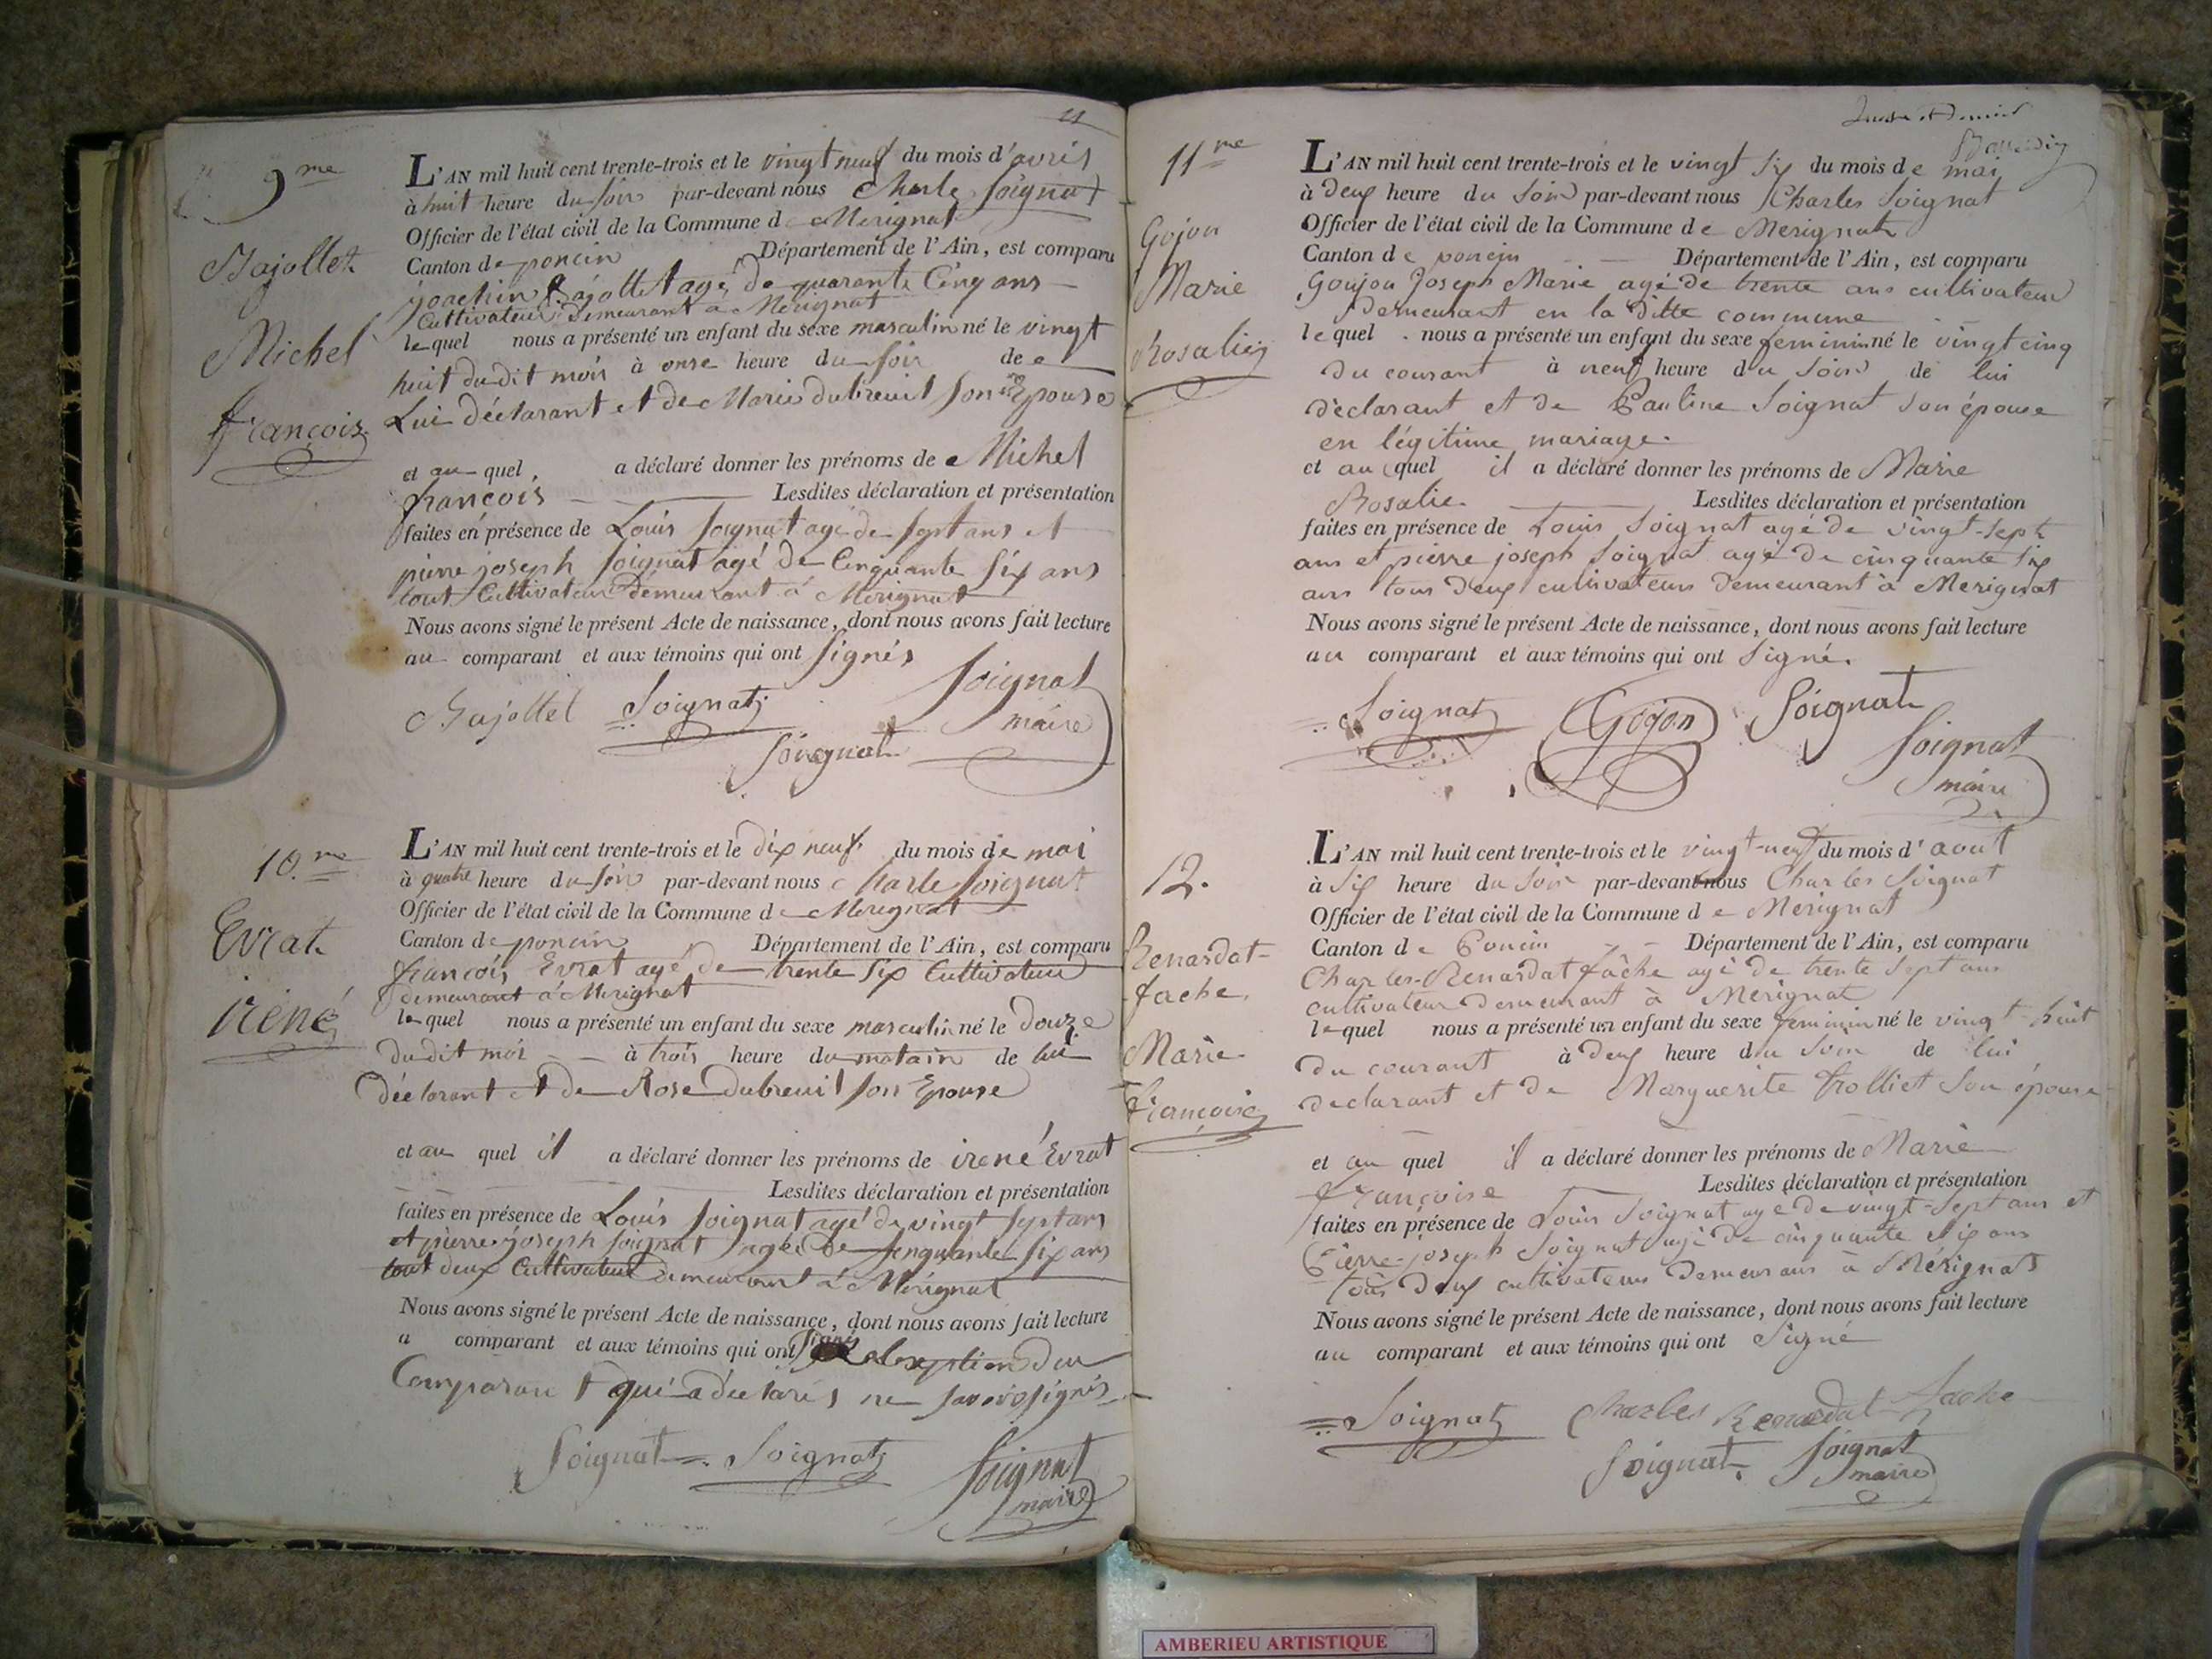 11
9me
Bajollet
Michel
françois
L'AN mil huit cent trente-trois et le vingt neuf du mois d'avril
à huit heure du soir par-devant nous Charle Soignat
Officier de l'état civil de la Commune de Merignat
Canton de poncin Département de l'Ain, est comparu
joachin Bajollet agé de quarante Cinq ans
Cultivateur demeurant à Merignat
lequel nous a présenté un enfant du sexe masculin né le vingt
huit dudit mois à onse heure du soir de
Lui déclarant et de Marie dubreuil son Epouse
et au quel a déclaré donner les prénoms de Michel
françois Lesdites déclaration et présentation
faites en présence de Louis Soignat agé de sept ans et
pierre joseph Soignat agé de Cinquante six ans
tout Cultivateur demeurant à Merignat
Nous avons signé le présent Acte de naissance, dont nous avons fait lecture
au comparant et aux témoins qui ont signés
Bajollet Soignat Soignat
maire
Soignat
10.me
Evrat
irené
L'AN mil huit cent trente-trois et le dix neuf du mois de mai
à quatre heure du soir par-devant nous Charle Soignat
Officier de l'état civil de la Commune de Merignat
Canton de poncin Département de l'Ain, est comparu
françois Evrat agé de trente six Cultivateur
demeurant à Merignat
lequel nous a présenté un enfant du sexe masculin né le douze
dudit mois à trois heure du matain de lui
déclarant et de Rose dubreuil son Epouse
et au quel il a déclaré donner les prénoms de irené Evrat
Lesdites déclaration et présentation
faites en présence de Louis Soignat agé de vingt sept ans
et pierre joseph Soignat agée de senquante six ans
tout deux Cultivateur demeurant à Merignat
Nous avons signé le présent Acte de naissance, dont nous avons fait lecture
a comparant et aux témoins qui ont signés
Comparant qui a déclarés ne savoir signés
Soignat Soignat Soignat
maire
11me
Gojon
Marie
Rosalie
L'AN mil huit cent trente-trois et le vingt six du mois de mai
à deux heure du soir par-devant nous Charles Soignat
Officier de l'état civil de la Commune de Merignat
Canton de poncin Département de l'Ain, est comparu
Goujon Joseph Marie agé de trente ans cultivateur
demeurant en la ditte commune
lequel nous a présenté un enfant du sexe feminin né le vingt cinq
du courant à neuf heure du soir de lui
déclarant et de Pauline Soignat son épouse
en légitime mariage.
et au quel il a déclaré donner les prénoms de Marie
Rosalie. Lesdites déclaration et présentation
faites en présence de Louis Soignat agé de vingt-sept
ans et pierre joseph Soignat agé de cinquante six
ans tous deux cultivateurs demeurant à Merignat
Nous avons signé le présent Acte de naissance, dont nous avons fait lecture
au comparant et aux témoins qui ont signé.
Soignat Gojon Soignat
Soignat
maire
12.
Renardat-
fache.
Marie
Françoise
L'AN mil huit cent trente-trois et le vingt-neuf du mois d'aout
à six heure du soir par-devant nous Charles Soignat
Officier de l'état civil de la Commune de Merignat
Canton de Poncin Département de l'Ain, est comparu
Charles-Renardat fâche agé de trente sept ans
cultivateur demeurant à Merignat
lequel nous a présenté un enfant du sexe feminin né le vingt-huit
du courant à deux heure du soir de lui
declarant et de Marguerite trolliet son épouse
et au quel il a déclaré donner les prénoms de Marie
françoise Lesdites déclaration et présentation
faites en présence de Louis Soignat agé de vingt-sept ans et
Pierre-joseph Soignat agé de cinquante six ans
tous deux cultivateurs demeurans à Mérignat
Nous avons signé le présent Acte de naissance, dont nous avons fait lecture
au comparant et aux témoins qui ont signé
Soignat Charles Renardat fache
Soignat Soignat
maire
AMBERIEU ARTISTIQUE